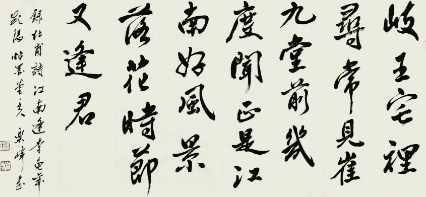 岐王宅裡
尋常見崔
九堂前幾
度聞正是江
南好風景
落花時節
又逢君
錄杜甫詩江南逢李龜年